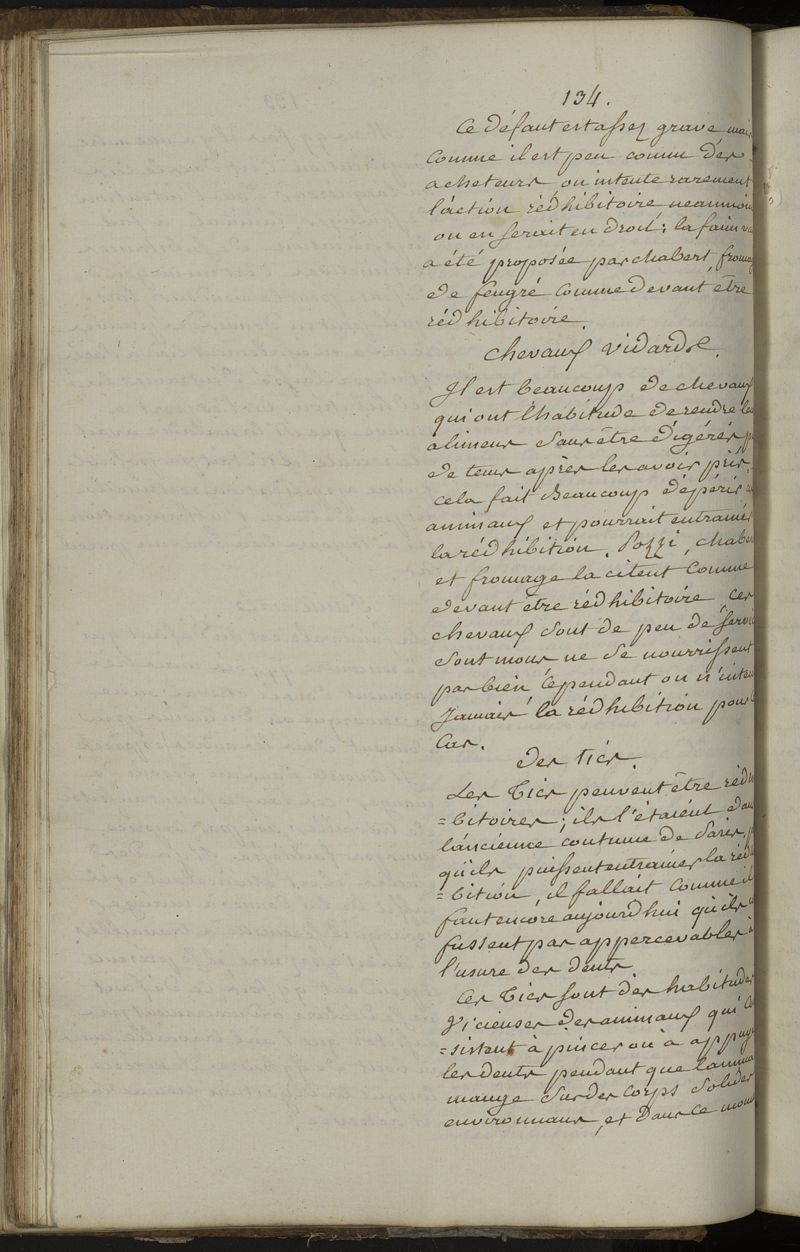 134.
Ce défaut est assez grave mais
comme il est peu connu des
acheteurs on intente rarement
l'action rédhibitoire neanmoin
on en serait en droit; la faim va
a été proposée par chabert froma
de feugré comme devant être
rédhibitoire.
chevaux vidards.
Il est beaucoup de chevaux
qui ont l'habitude de rendre les
alimens sans être digérés p
de tems après les avoir pris.
cela fait beaucoup dépérir
animaux et pourrait entrainer
la rédhibition. Pozzi, chaber
et fromage la citent comme
devant être rédhibitoire ces
chevaux sont de peu de servi
sont mous ne se nourrissent
pas bien cépendant on n'inten
Jamais la rédhibition pour
cas.
des tics.
Les Tics peuvent être rédh
=bitoires; ils l'étaient dan
l'ancienne coutume de Paris, p
qu'ils puissent entrainer la réd
=bition, il fallait comme il
faut encore aujourd'hui qu'ils
fussent pas appercevables à
l'usure des dents.
Ces Tics sont des habitudes
Vicieuses des animaux qui co
=sistent à pincer ou à appuy
les dents pendant que l'anima
mange sur des corps solides
environnans, et dans ce mom